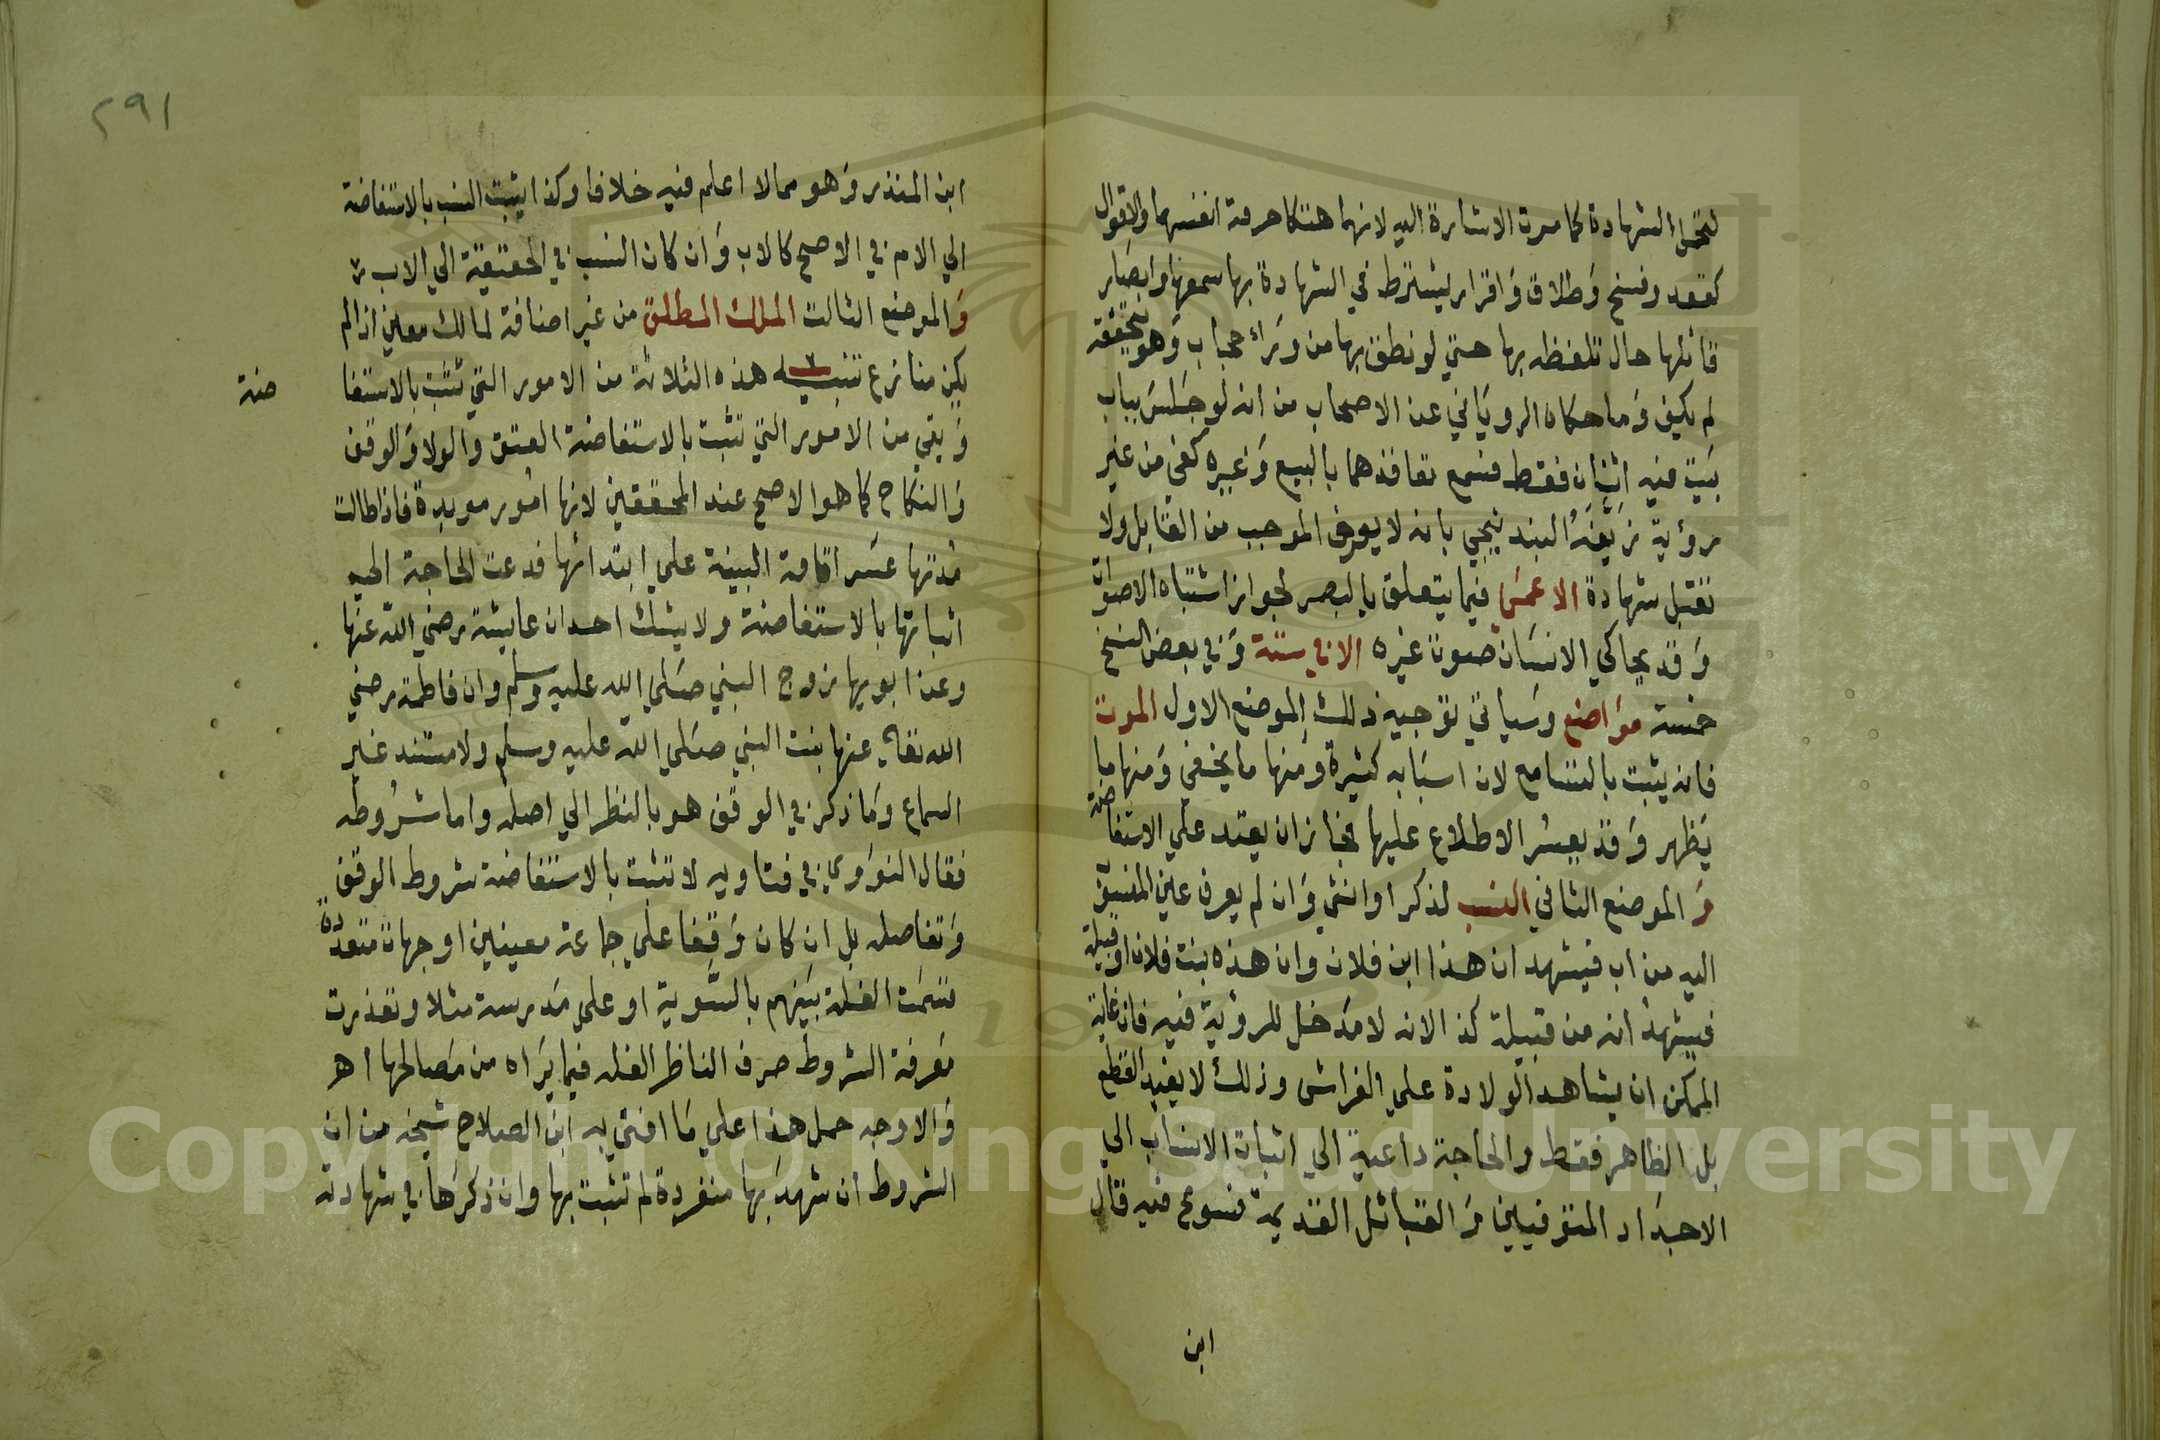 لتحمل الشهادة كما مرت الاشارة اليه لانهما هتكا حرمة انفسهما والاقوال
كعقد وفسخ وَطلاق وَاقرار يشترط في الشهادة بها سمعها وابصَار
قائلها حال تلفظه بها حتي لو نطق بها من وَرَاء حجاب وَهو يتحققه
لم يكف وَما حكاه الرويَاني عن الاصحاب من انه لو جَلسَ بباب
بَيت فيه اثنان فقط فسمع تعاقدهما بالبيع وَغيره كفي من غير
رؤية زيَّفَهُ البندنيجي بانه لا يعرف الموجب من القابل ولا
تقبل شهادة الاعمَى فيما يتعلق بالبصر لجواز اشتباه الاصوات
وَقد يحاكي الانسَان صوت غيره الا في ستة وَفي بعض النسخ
خمسة موَاضع وسَياتي توَجيه ذلك الموضع الاول الموت
فانه يثبت بالتسامع لان اسبَابه كثيرة وَمنها ما يخفي وَمنها ما
يَظهر وَقد يعسُر الاطلاع عليها فجاز ان يعتمد علي الاستفاضة
وَ الموضع الثاني النسب لذكر او انثي وَان لم يعرف عين المنسوب
اليه من اب فيشهد ان هذا ابن فلان وان هذه بنت فلان او قبيلة
فيشهد انه من قبيلة كذا لانه لا مدَخل للرؤية فيه فان غاية
الممكن ان يشاهد الولادة علي الفراش وذلك لا يفيد القطع
بل الظاهر فقط والحاجة داعية الي اثبات الانساب الي
الاجدَاد المتوفيين وَالقبائل القديمة فسومح فيه قال
ابن
٢٩١
ابن المنذر وَهو مما لا اعلم فيه خلافا وكذا يثبت النسب بالاستفاضة
الي الام في الاصح كالاب وَان كان النسب في الحقيقة الي الاب
وَالموضع الثالث الملك المطلق من غير اضافة لمالك معين اذا لم
يكن منازع تنبيه هذه الثلاثة من الامور التي تثبت بالاستفا
ضة
وَبقي من الامور التي تثبت بالاستفاضة العتق وَالولا وَالوقف
وَالنكاح كما هو الاصح عند المحققين لانها امُور موبدة فاذا طالت
مُدتها عسَر اقامة البينة علي ابتدائها فدعت الحاجة الي
اثباتها بالاستفاضة ولا يشك احد ان عايشة رضي الله عنها
وعن ابويها زوج النبي صلي الله عليه وسلم وان فاطمة رضي
الله تعالي عنها بنت النبي صلي الله عليه وسلم ولا مستند غير
السماع وَما ذكر في الوقف هو بالنظر الي اصله واما شرُوطه
فقال النوَوي في فتاويه لا تثبت بالاستفاضة شروط الوقف
وَتفاصله بل ان كان وَقفا علي جماعة معينين او جهات متعددة
قسمَت الغلة بيَنهم بالسَّوية او علي مَدرسة مثلا وتعذرت
مَعرفة الشروط صرف الناظر الغله فيما يَراه من مَصالحها اهـ
وَالاوجه حمل هذا علي مَا افتي به ابن الصلاح شيخه من ان
الشروط ان شهدَ بها منفردة لم تثبت بها وان ذكرَها في شهادته
Copyright © King Saud University